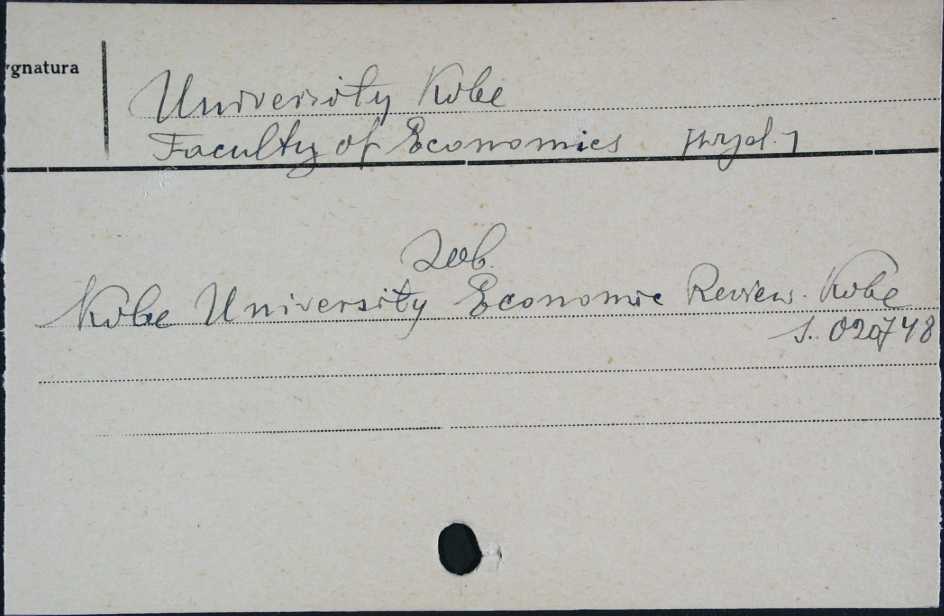 ygnatura
University Kobe
Faculty of Economics [wyd.]
Zob.
Kobe University Economic Review. Kobe
S. 020748